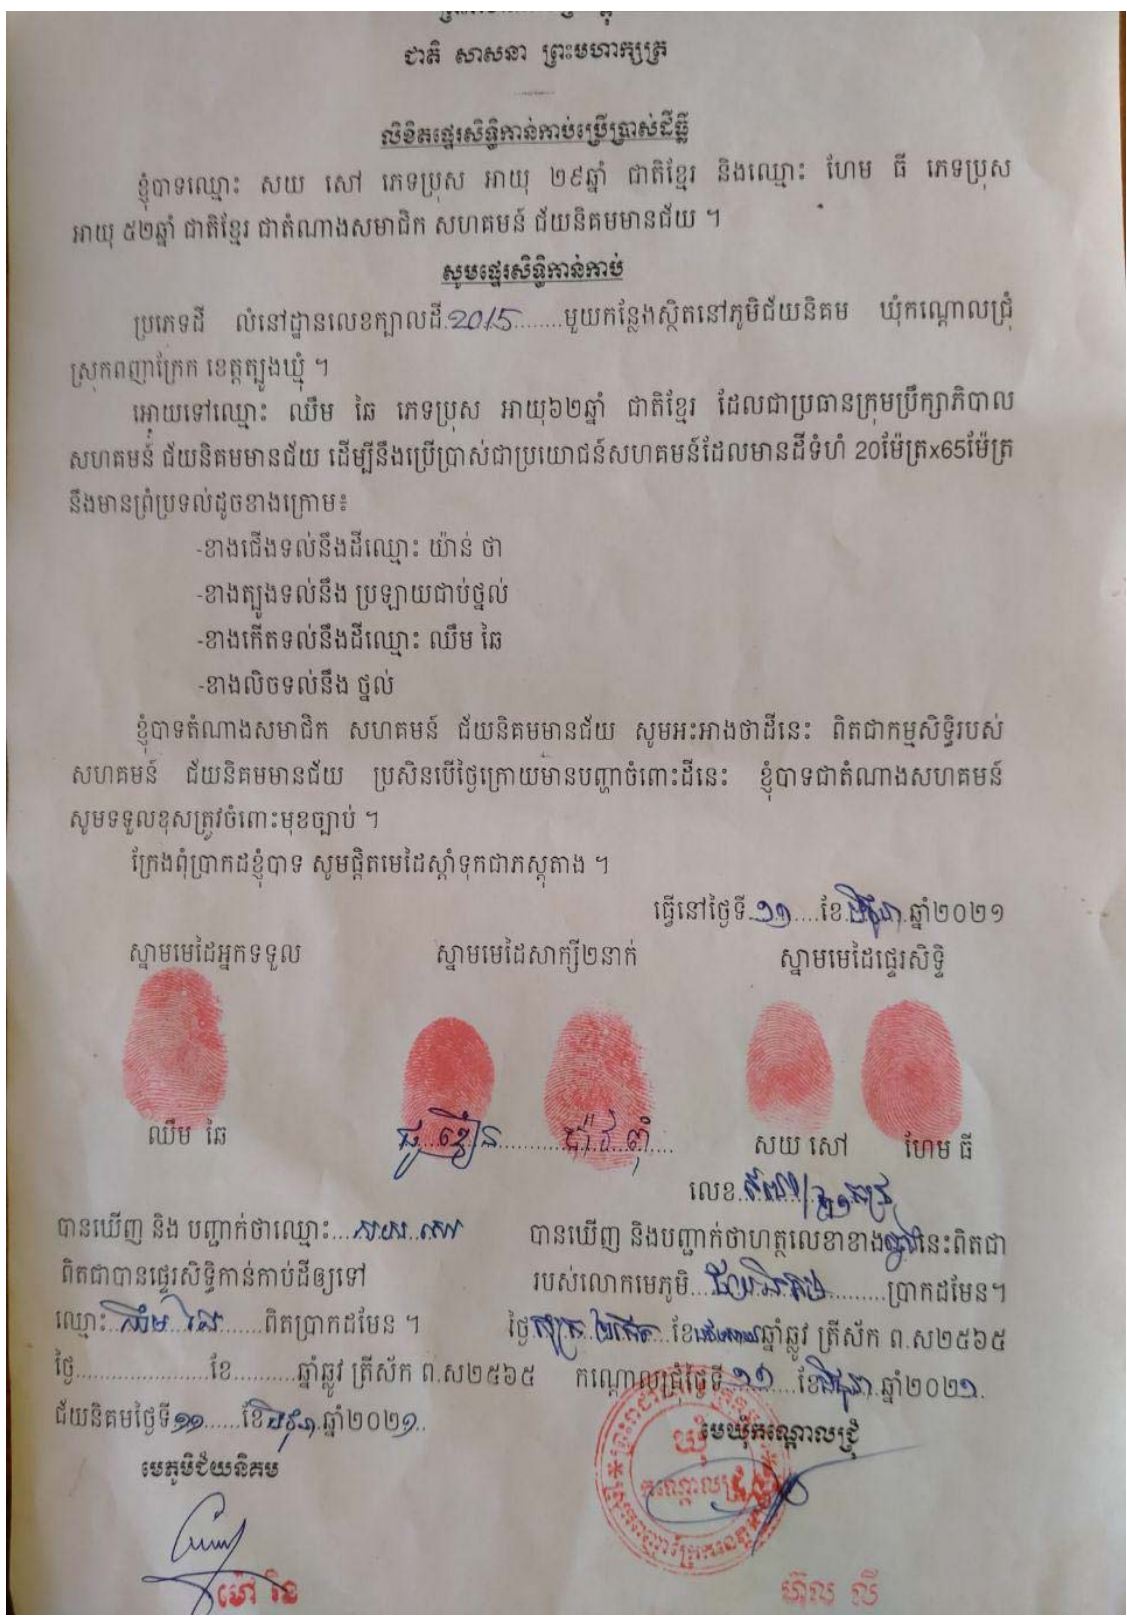 ជាតិ សាសនា ព្រះមហាក្សត្រ
លិខិតផ្ទេរសិទ្ធិកាន់កាប់ប្រើប្រាស់ដីធ្លី
ខ្ញុំបាទឈ្មោះ សយ សៅ ភេទប្រុស អាយុ ២៩ឆ្នាំ ជាតិខ្មែរ និងឈ្មោះ ហែម ធី ភេទប្រុស
អាយុ ៥២ឆ្នាំ ជាតិខ្មែរ ជាតំណាងសមាជិក សហគមន៍ ជ័យនិគមមានជ័យ ។
សូមផ្ទេរសិទ្ធិកាន់កាប់
ប្រភេទដី លំនៅដ្ឋានលេខក្បាលដី.2015........មួយកន្លែងស្ថិតនៅភូមិជ័យនិគម ឃុំកណ្តោលជ្រុំ
ស្រុកពញាក្រែក ខេត្តត្បូងឃ្មុំ ។
អោយទៅឈ្មោះ ឈឹម ឆៃ ភេទប្រុស អាយុ៦២ឆ្នាំ ជាតិខ្មែរ ដែលជាប្រធានក្រុមប្រឹក្សាភិបាល
សហគមន៍ ជ័យនិគមមានជ័យ ដើម្បីនឹងប្រើប្រាស់ជាប្រយោជន៍សហគមន៍ដែលមានដីទំហំ 20ម៉ែត្រx65ម៉ែត្រ
នឹងមានព្រំប្រទល់ដូចខាងក្រោម៖
-ខាងជើងទល់នឹងដីឈ្មោះ យ៉ាន់ ថា
-ខាងត្បូងទល់នឹង ប្រឡាយជាប់ថ្នល់
-ខាងកើតទល់នឹងដីឈ្មោះ ឈឹម ឆៃ
-ខាងលិចទល់នឹង ថ្នល់
ខ្ញុំបាទតំណាងសមាជិក សហគមន៍ ជ័យនិគមមានជ័យ សូមអះអាងថាដីនេះ ពិតជាកម្មសិទ្ធិរបស់
សហគមន៍ ជ័យនិគមមានជ័យ ប្រសិនបើថ្ងៃក្រោយមានបញ្ហាចំពោះដីនេះ ខ្ញុំបាទជាតំណាងសហគមន៍
សូមទទួលខុសត្រូវចំពោះមុខច្បាប់ ។
ក្រែងពុំប្រាកដខ្ញុំបាទ សូមផ្តិតមេដៃស្តាំទុកជាភស្តុតាង ។
ធ្វើនៅថ្ងៃទី.១១....ខែ.មិថុនា.ឆ្នាំ២០២១
ស្នាមមេដៃអ្នកទទួល ស្នាមមេដៃសាក្សី២នាក់ ស្នាមមេដៃផ្ទេរសិទ្ធិ
ឈឹម ឆៃ សយ សៅ ហែម ធី
លេខ.
បានឃើញ និង បញ្ជាក់ថាឈ្មោះ...សយ សៅ
បានឃើញ និងបញ្ជាក់ថាហត្ថលេខាខាងឆ្វេងនេះពិតជា
ពិតជាបានផ្ទេរសិទ្ធិកាន់កាប់ដីឲ្យទៅ
របស់លោកមេភូមិ...ជ័យនិគម.........ប្រាកដមែន។
ឈ្មោះ.ឈឹម ឆៃ.......ពិតប្រាកដមែន ។
ថ្ងៃសុក្រ ២កើត..ខែ ឆ្នាំឆ្លូវ ត្រីស័ក ព.ស២៥៦៥
ថ្ងៃ......................ខែ..........ឆ្នាំឆ្លូវ ត្រីស័ក ព.ស២៥៦៥
កណ្តោលជ្រុំថ្ងៃទី.១១....ខែមិថុនា.ឆ្នាំ២០២១.
ជ័យនិគមថ្ងៃទី១១......ខែមិថុនា.ឆ្នាំ២០២១..
មេឃុំកណ្តោលជ្រុំ
មេភូមិជ័យនិគម
ឃុំ
កណ្តោលជ្រុំ
ម៉ៅ រិន
ហ៊ុល លី